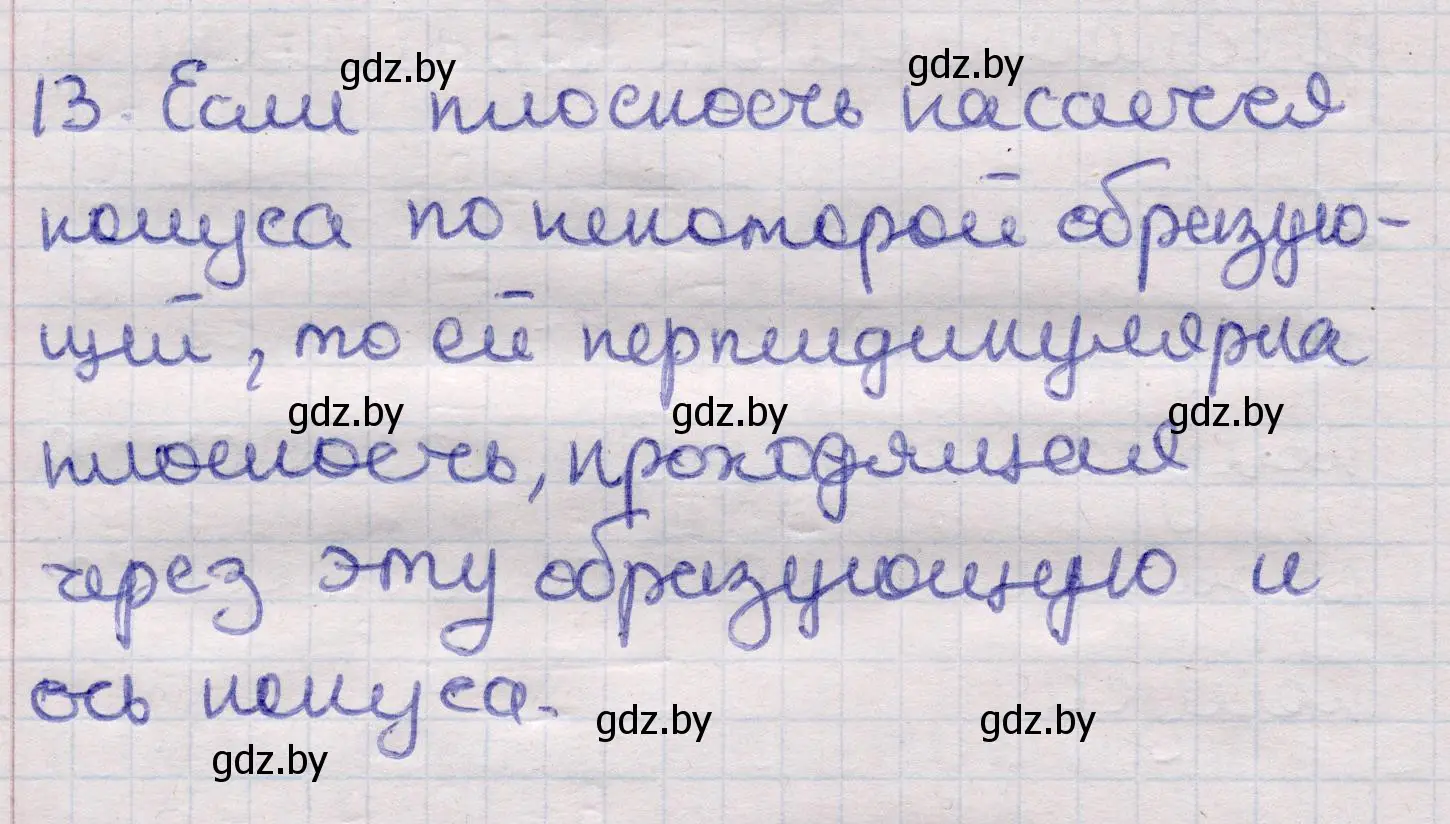 gdz.by gdz.by
13. Если плоскость касается
конуса по некоторой образую-
щей, то ей перпендикулярна
gdz.by gdz.by gdz.by
плоскость, проходящая
через эту образующую и
ось конуса.
gdz.by gdz.by
gdz.by